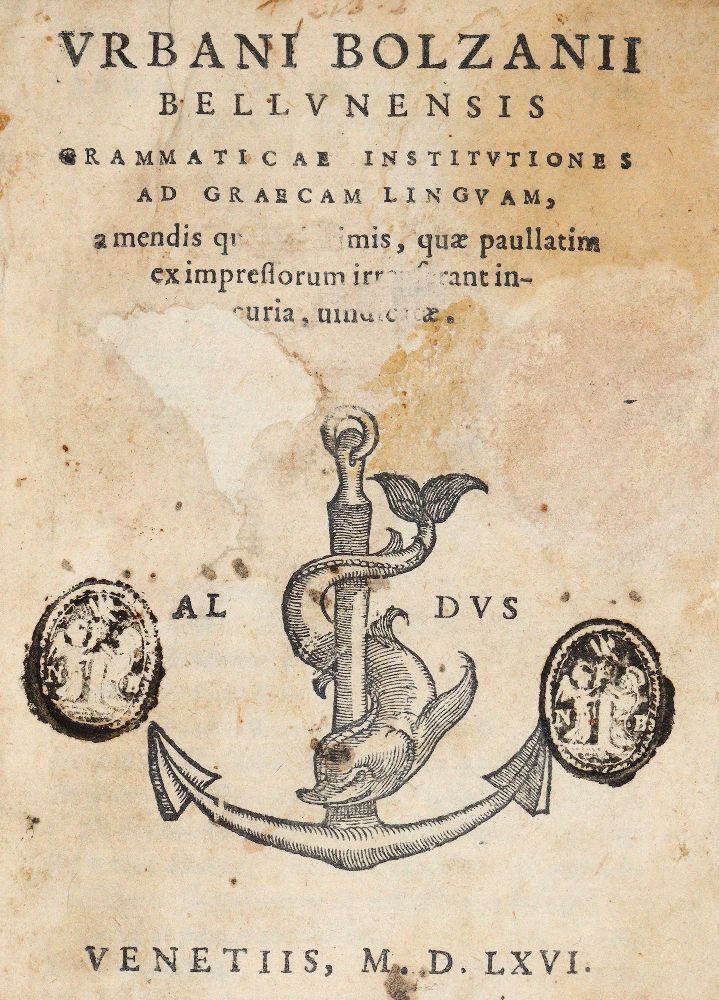 VRBANI BOLZANII
BELLVNENSIS
GRAMMATICAE INSTITVTIONES
AD GRAECAM LINGVAM,
a mendis imis, quæ paullatim
ex impressorum in-
curia, uindicatæ.
AL DVS
N B
N B
VENETIIS, M. D. LXVI.